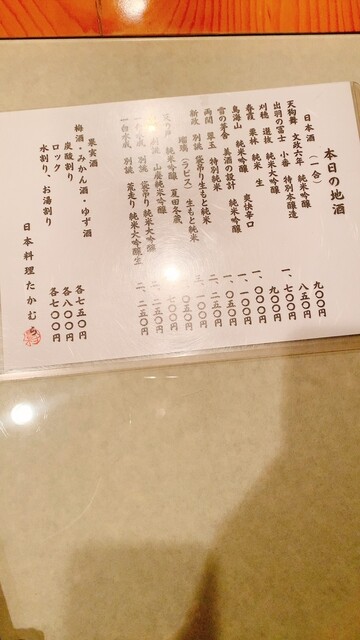 本日の地酒
日本酒（一合）
天狗舞 文政六年 純米吟醸 九〇〇円
出羽の冨士 小番 特別本醸造 八五〇円
刈穂 選抜 純米大吟醸 一、七〇〇円
春霞 栗林 純米 生 九〇〇円
鳥海山 純米吟醸 爽快辛口 一、〇〇〇円
雪の茅舎 美酒の設計 純米吟醸 一、〇五〇円
両関 翠玉 特別純米
新政 別誂 袋吊り生もと純米
瑠璃（ラピス）生もと純米
純米吟醸 夏田冬蔵
別誂 山廃純米吟醸
別誂 袋吊り 純米大吟醸
一白水成 別誂 荒走り 純米大吟醸生 二、二五〇円
果実酒
梅酒・みかん酒・ゆず酒 各七五〇円
炭酸割り 各八〇〇円
ロック 各七〇〇円
水割り、お湯割り
日本料理たかむら